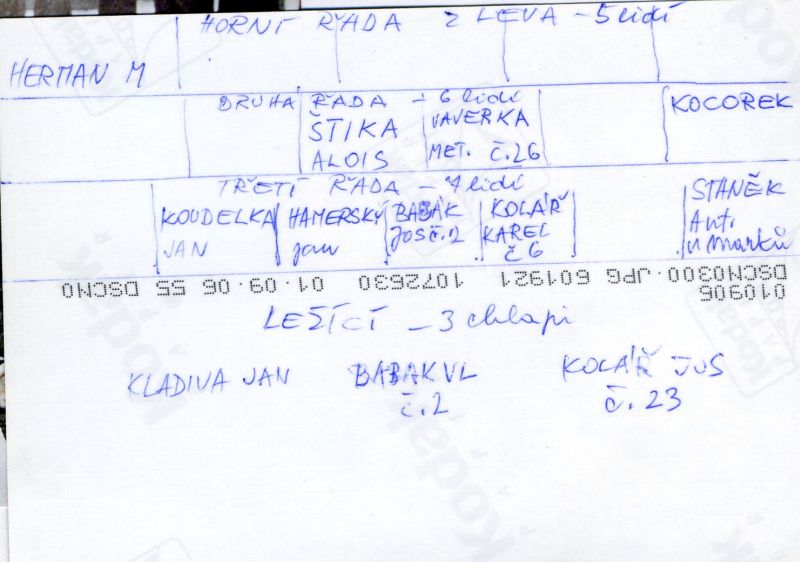 HORNÍ ŘADA Z LEVA - 5 lidí
HERMAN M
DRUHA ŘADA - 6 lidí
ŠTIKA ALOIS
VAVERKA MET. č.26
KOCOREK
TŘETÍ ŘADA - 7 lidí
KOUDELKA JAN
HAMERSKÝ Jan
BABÁK JOS č.2
KOLÁŘ KAREL č 6
STANĚK Ant.
010906
DSCN0300.JPG 601921 1072630 01.09.06 55 DSCN0
LEŽÍCÍ - 3 chlapi
KLADIVA JAN BABAK VL KOLÁŘ JOS
č.2 č.23
Kodak